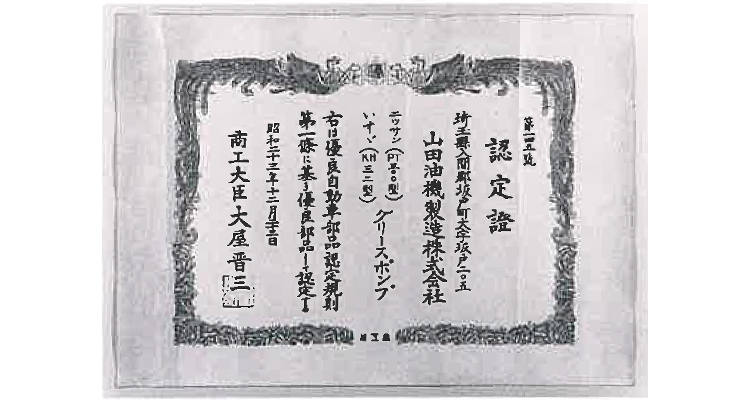 第一四五號
認定證
埼玉縣入間郡坂戸町大字坂戸二〇五
山田油機製造株式会社
ニッサン(PT型)
いすゞ(KH三二型)
グリースポンプ
右は優良自動車部品認定規則
第一條に基き優良部品として認定する
昭和二十三年十二月二十二日
商工大臣大屋晋三